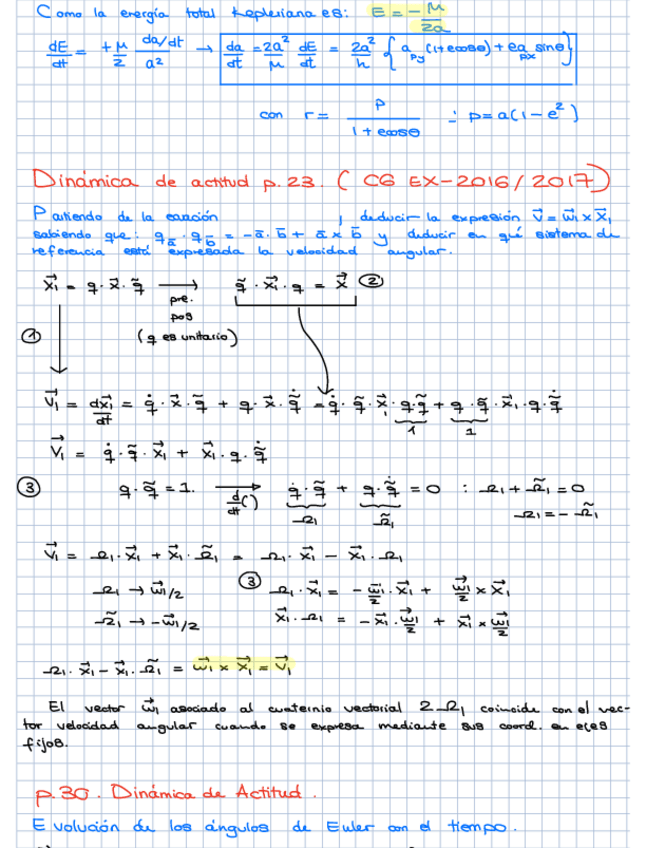 Como la energía total kepleriana es: E = - μ/2a
dE/dt = +μ/2 da/dt/a² → da/dt = 2a²/μ dE/dt = 2a²/h { a_py (1+ecosθ) + e a_px sinθ }
con r = p / 1+ecosθ ∴ p = a(1-e²)
Dinámica de actitud p.23. ( CG EX-2016/2017)
Partiendo de la ecuación , deducir la expresión v⃗ = ω⃗₁ x x⃗₁
sabiendo que: q_ā · q_b̄ = -ā · b̄ + ā x b̄ y deducir en qué sistema de
referencia está expresada la velocidad angular.
x⃗₁ = q · x⃗ · q̃ → q̃ · x⃗₁ · q = x⃗ ②
pre.
pos
① (q es unitario)
v⃗₁ = dx⃗₁/dt = q̇ · x⃗ · q̃ + q · x⃗ · q̃̇ = q̇ · q̃ · x⃗₁ · q · q̃ + q · q̃ · x⃗₁ · q · q̃̇
1 1
v⃗₁ = q̇ · q̃ · x⃗₁ + x⃗₁ · q · q̃̇
③ q · q̃ = 1. → d/dt() q̇ · q̃ + q · q̃̇ = 0 : Ω₁ + Ω̃₁ = 0
Ω₁ Ω̃₁ Ω₁ = - Ω̃₁
v⃗₁ = Ω₁ · x⃗₁ + x⃗₁ · Ω̃₁ = Ω₁ · x⃗₁ - x⃗₁ · Ω₁
Ω₁ → ω⃗₁/2 ③ Ω₁ · x⃗₁ = - ω⃗₁/2 · x⃗₁ + ω⃗₁/2 x x⃗₁
Ω̃₁ → -ω⃗₁/2 x⃗₁ · Ω₁ = - x⃗₁ · ω⃗₁/2 + x⃗₁ x ω⃗₁/2
Ω₁ · x⃗₁ - x⃗₁ · Ω̃₁ = ω⃗₁ x x⃗₁ = v⃗₁
El vector ω⃗₁ asociado al cuaternio vectorial 2 Ω₁ coincide con el vec-
tor velocidad angular cuando se expresa mediante sus coord. en ejes
fijos.
p.30. Dinámica de Actitud.
Evolución de los ángulos de Euler con el tiempo.